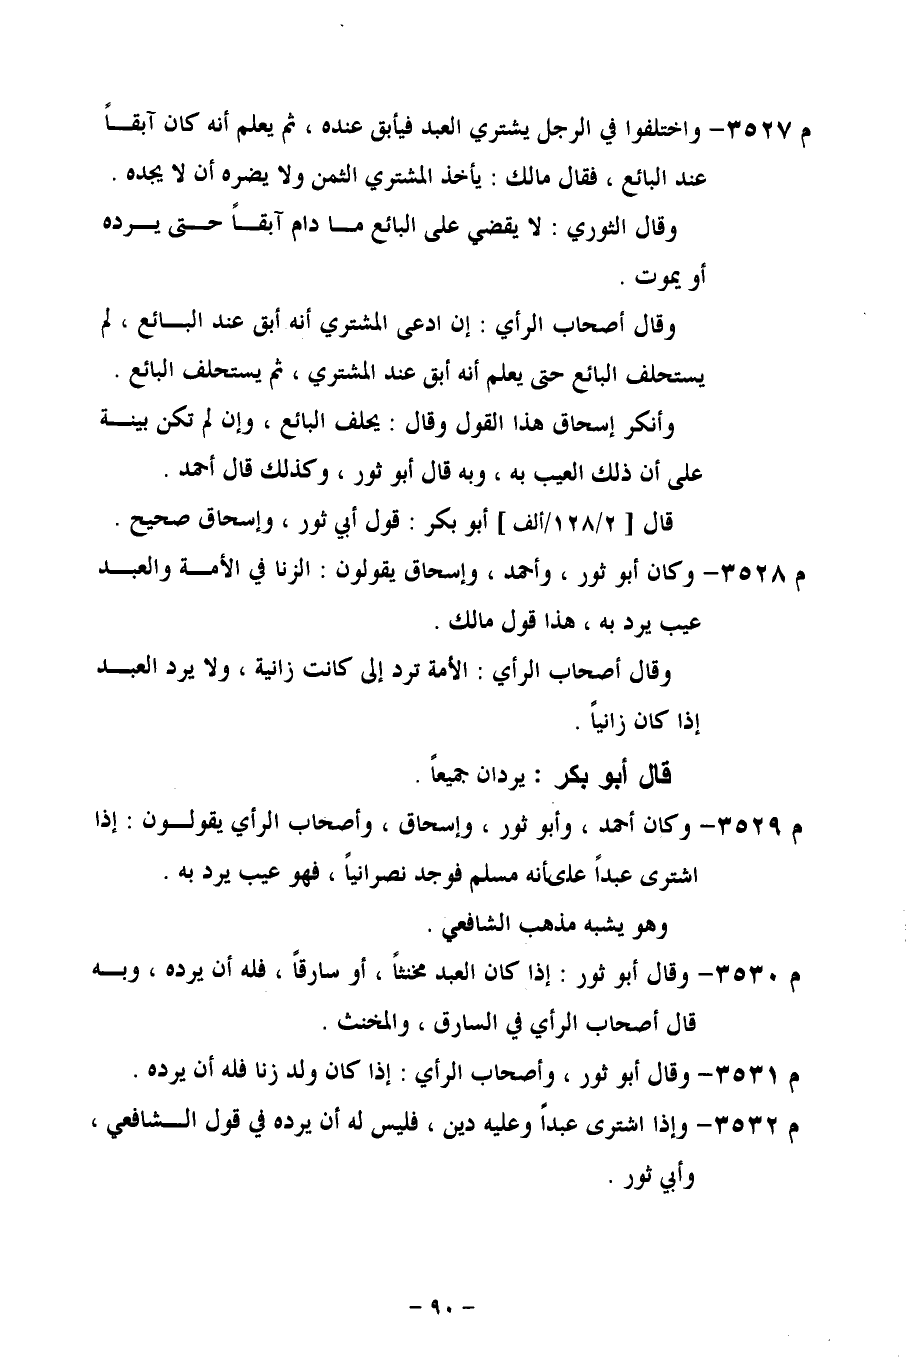 م ٣٥٢٧– واختلفوا في الرجل يشتري العبد فيأبق عنده ، ثم يعلم أنه كان آبقـــاً
عند البائع ، فقال مالك : يأخذ المشتري الثمن ولا يضره أن لا يجده .
وقال الثوري : لا يقضي على البائع مـــا دام آبقـــاً حـــتى يـــرده
أو يموت .
وقال أصحاب الرأي : إن ادعى المشتري أنه أبق عند البـــائع ، لم
يستحلف البائع حتى يعلم أنه أبق عند المشتري ، ثم يستحلف البائع .
وأنكر إسحاق هذا القول وقال : يحلف البائع ، وإن لم تكن بينـــة
على أن ذلك العيب به ، وبه قال أبو ثور ، وكذلك قال أحمد .
قال [ ١٢٨/٢/ألف ] أبو بكر : قول أبي ثور ، وإسحاق صحيح .
م ٣٥٢٨– وكان أبو ثور ، وأحمد ، وإسحاق يقولون : الزنا في الأمـــة والعبـــد
عيب يرد به ، هذا قول مالك .
وقال أصحاب الرأي : الأمة ترد إلى كانت زانية ، ولا يرد العبـــد
إذا كان زانياً .
قال أبو بكر : يردان جميعاً .
م ٣٥٢٩– وكان أحمد ، وأبو ثور ، وإسحاق ، وأصحاب الرأي يقولـــون : إذا
اشترى عبداً على أنه مسلم فوجد نصرانياً ، فهو عيب يرد به .
وهو يشبه مذهب الشافعي .
م ٣٥٣٠– وقال أبو ثور : إذا كان العبد مخنثاً ، أو سارقاً ، فله أن يرده ، وبـــه
قال أصحاب الرأي في السارق ، والمخنث .
م ٣٥٣١– وقال أبو ثور ، وأصحاب الرأي : إذا كان ولد زنا فله أن يرده .
م ٣٥٣٢– وإذا اشترى عبداً وعليه دين ، فليس له أن يرده في قول الـــشافعي ،
وأبي ثور .
– ٩٠ –